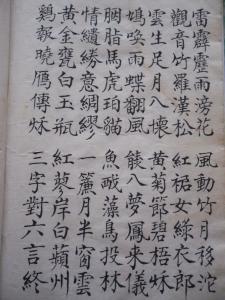 雷霹靂雨滂花 風動竹月移沱
觀音竹羅漢松 紅裙女綠衣郎
雲生足月入懷 黃菊節碧梧秌
鳩喚雨蝶翻風 熊入夢鳳來儀
胭脂馬虎珀貓 魚戲藻鳥投林
情繾綣意綢繆 一簾月半窗雲
黃金甕白玉瓶 紅蓼岸白蘋州
鷄報曉鴈傳秌 三字對六言終